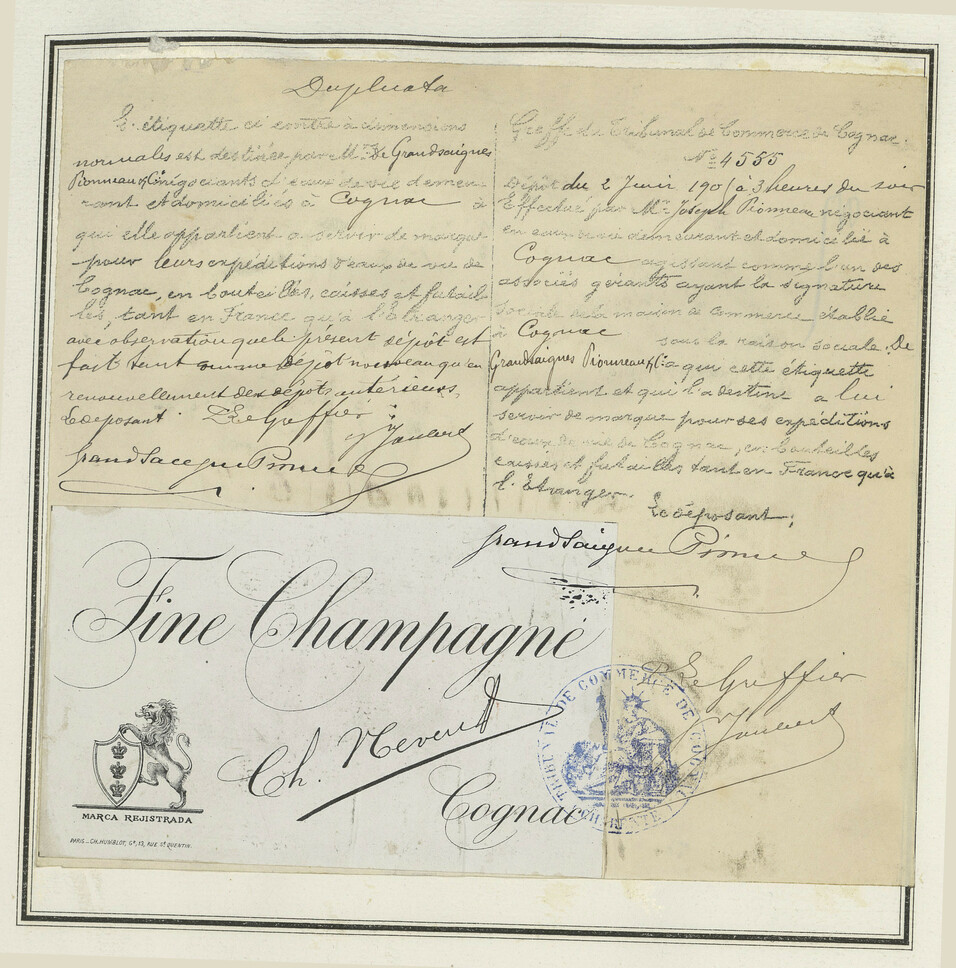 Duplicata
L'étiquette ci contre à dimensions
normales est destinée par Mr De Grandsaignes
Pionneau & Cie négociants d'eaux de vie demeu-
rant et domiciliés à Cognac à
qui elle appartient a servir de marque
pour leurs expéditions d'eaux de vie de
Cognac, en bouteilles, caisses et futail-
les, tant en France qu'à l'Etranger
avec observation que le présent dépôt est
fait tant comme dépôt nouveau qu'en
renouvellement des dépôts antérieurs.
Le déposant P. Le Greffier
Joubert
Grandsaignes Pionneau
Greffe du Tribunal de Commerce de Cognac.
No 4555
Dépôt du 2 Juin 1901 à 3 heures du soir
Effectué par Mr Joseph Pionneau négociant
en eaux de vie demeurant et domicilié à
Cognac agissant comme l'un des
associés gérants ayant la signature
sociale de la maison de commerce établie
à Cognac sous la raison sociale. De
Grandsaignes Pionneau & Cie a qui cette étiquette
appartient et qui l'a destine a lui
servir de marque pour ses expéditions
d'eaux de vie de Cognac, en bouteilles
caisses et futailles tant en France qu'à
l'Etranger.
Le déposant;
Grandsaignes Pionneau
P. Le Greffier
Joubert
Fine Champagne
Ch.
Cognac
MARCA REJISTRADA
PARIS _ CH. HUMBLOT, Gt, 13, RUE St QUENTIN.
TRIBUNAL DE COMMERCE DE COGNAC
CHARENTE